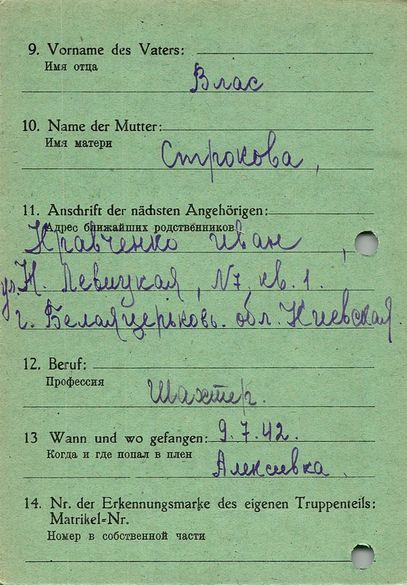 9. Vorname des Vaters:
Имя отца
Влас
10. Name der Mutter:
Имя матери
Строкова,
11. Anschrift der nächsten Angehörigen:
Адрес ближайших родственников
Кравченко Иван,
ул. Н. Левицкая, N7, кв. 1.
г. Белаяцерьковь. обл. Киевская
12. Beruf:
Профессия
Шахтер.
13 Wann und wo gefangen: 9.7.42.
Когда и где попал в плен
Алексиевка.
14. Nr. der Erkennungsmarke des eigenen Truppenteils:
Matrikel-Nr.
Номер в собственной части